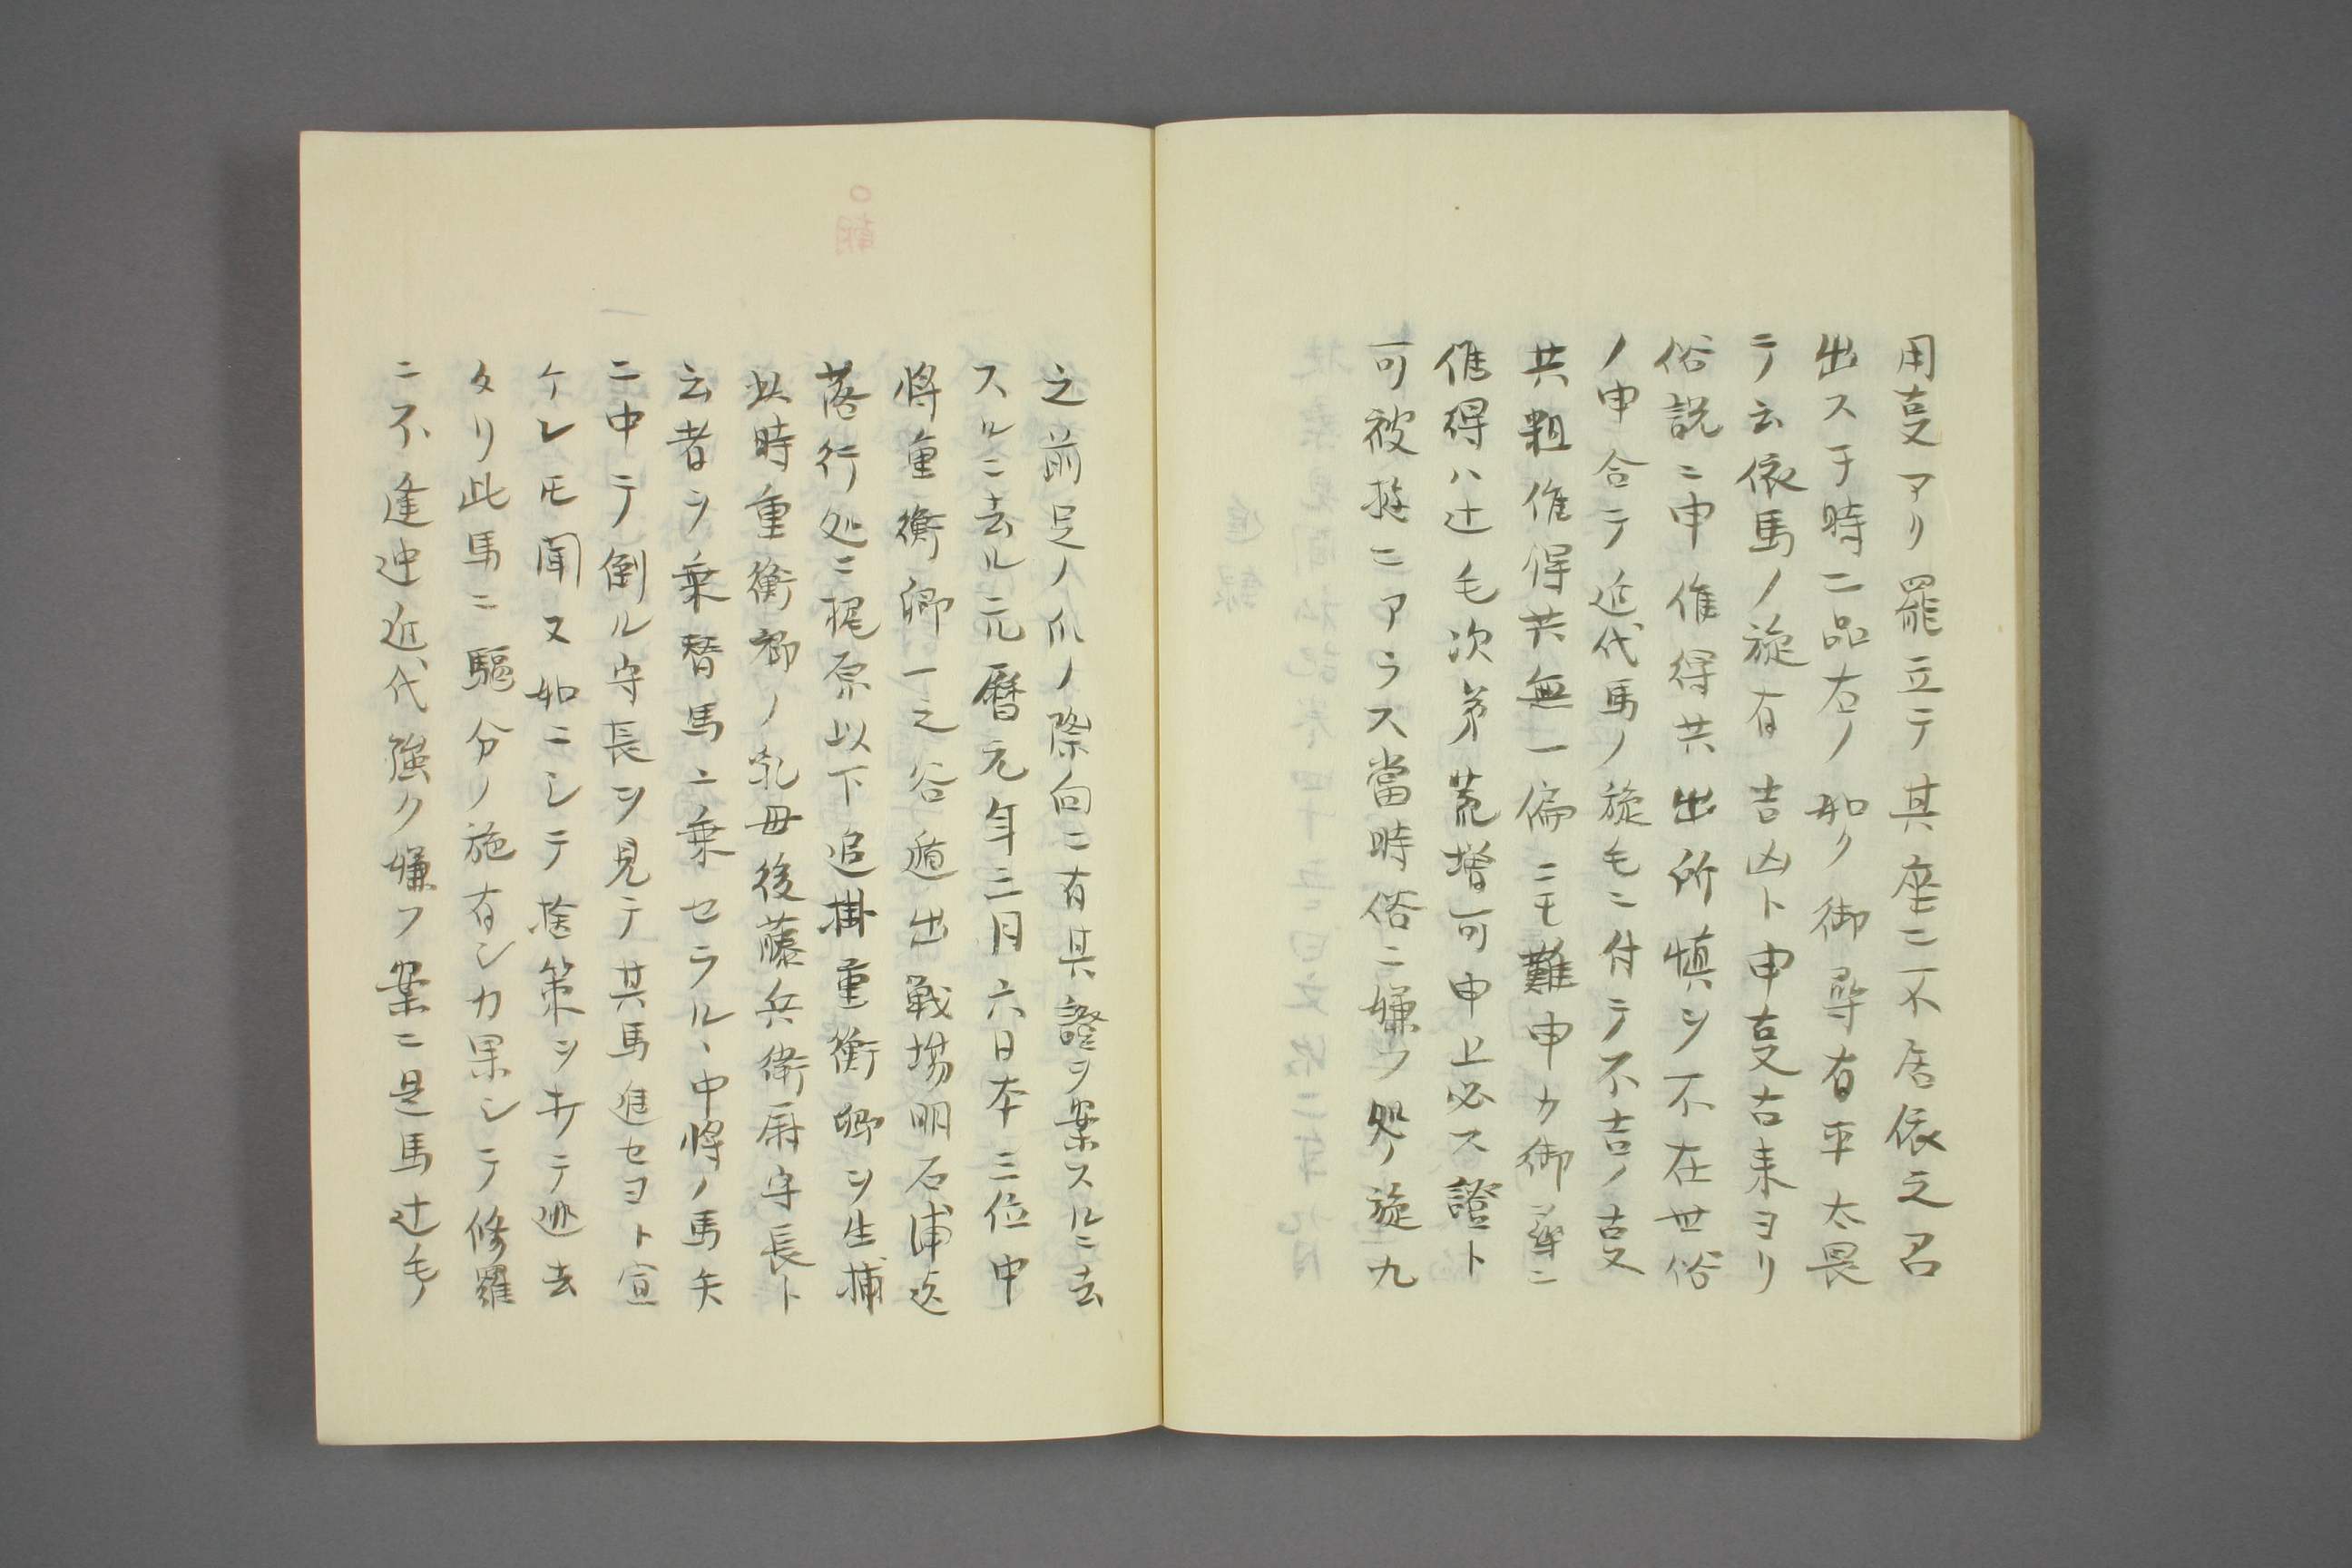 用叓アリ罷立テ其座ニ不居依之君
出ス于時二品右ノ如ク御尋有平太畏
テ云依馬ノ旋有吉凶ト申叓古来ヨリ
俗説ニ申惟得共出所慎ンソ不在世俗
ノ申合テ近代馬ノ旋毛ニ付テ不吉ノ叓
共粗惟得共無一偏ニモ難申カ御尋ニ
惟得ハ辻毛次第荒増可申上必ス證ト
可被 ニアラス當時俗ニ嫌フ処ノ旋九
之前足ノ爪ノ際向ニ有其證ヲ案スルニ去
スルニ去ル元暦元年三月六日本三位中
将重衡卿一之谷遁出戦場明石浦迄
落行処ニ梶原以下追掛重衡卿ヲ生捕
此時重衡卿ノ乳母後藤兵衛尉守長ト
云者ヲ乗替馬ニ乗セラル、中将ノ馬矢
ニ中テ倒ル守長ヲ見テ其馬進セヨト宣
ケレモ聞ヌ如ニシテ捨策ヲキテ逃去
タリ此馬ニ驅分ノ旋有シカ果シテ修羅
ニ不逢迚近代強ク嫌フ案ニ是馬辻毛ノ